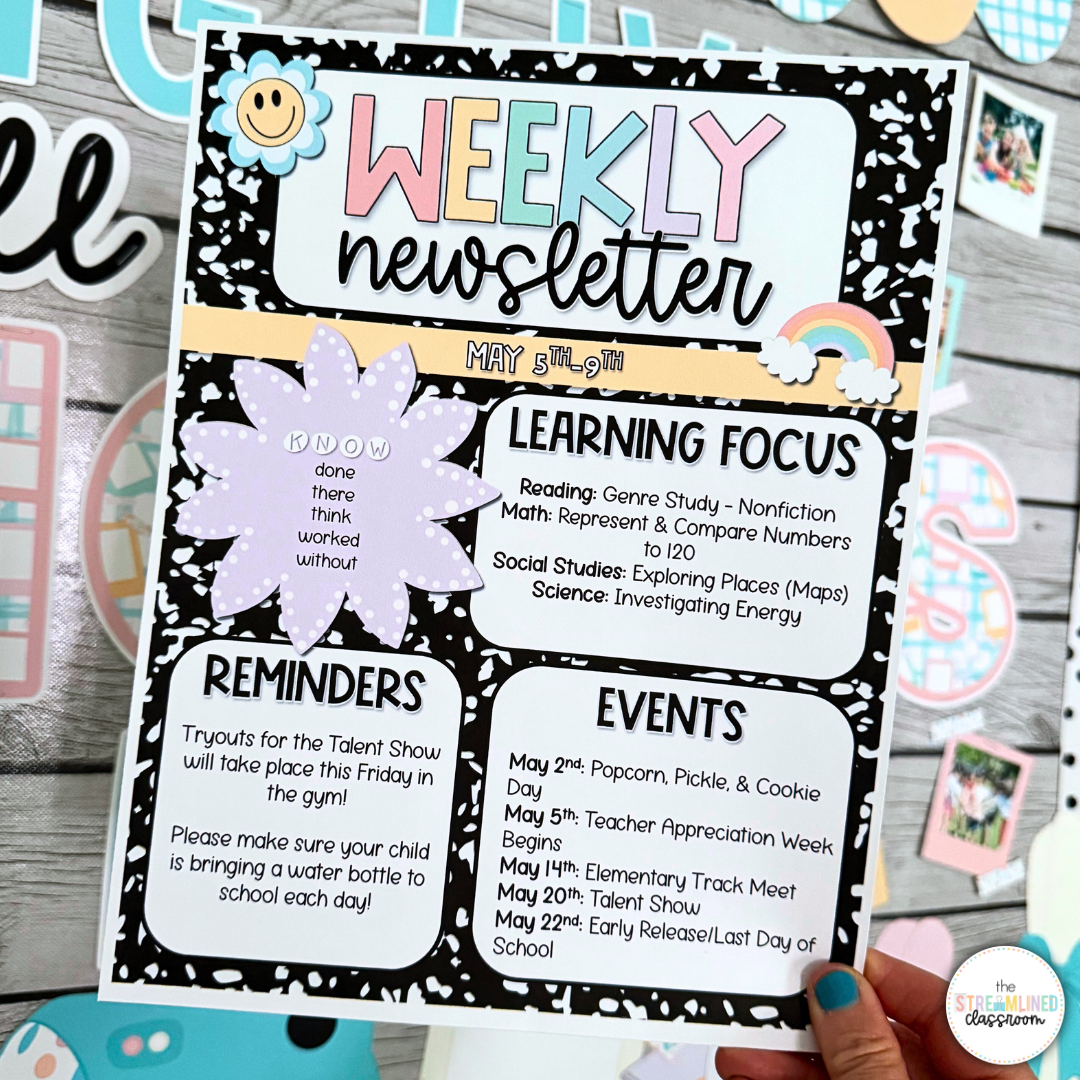 WEEKLY
newsletter
MAY 5TH-9TH
KNOW
done
there
think
worked
without
LEARNING FOCUS
Reading: Genre Study - Nonfiction
Math: Represent & Compare Numbers
to 120
Social Studies: Exploring Places (Maps)
Science: Investigating Energy
REMINDERS
Tryouts for the Talent Show
will take place this Friday in
the gym!
Please make sure your child
is bringing a water bottle to
school each day!
EVENTS
May 2nd: Popcorn, Pickle, & Cookie
Day
May 5th: Teacher Appreciation Week
Begins
May 14th: Elementary Track Meet
May 20th: Talent Show
May 22nd: Early Release/Last Day of
School
the
STREAMLINED
classroom